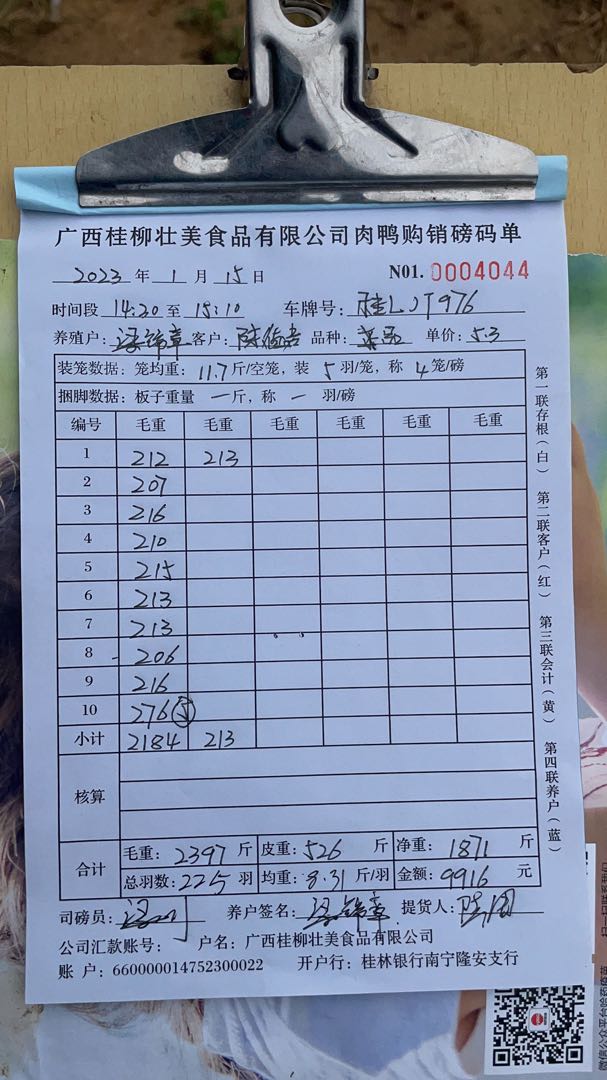 广西桂柳壮美食品有限公司肉鸭购销磅码单
2023 年 1 月 15 日 N01. 0004044
时间段 14:20 至 15:10 车牌号: 桂LJT976
养殖户: 梁锦章 客户: 陈俊 品种: 单价: 5.3
装笼数据: 笼均重: 11.7 斤/空笼, 装 5 羽/笼, 称 4 笼/磅
捆脚数据: 板子重量 — 斤, 称 — 羽/磅
编号 毛重 毛重 毛重 毛重 毛重 毛重
1 212 213
2 207
3 216
4 210
5 215
6 213
7 213
8 206
9 216
10 276 ⑤
小计 2184 213
核算
合计 毛重: 2397 斤 皮重: 526 斤 净重: 1871 斤
总羽数: 225 羽 均重: 8.31 斤/羽 金额: 9916 元
司磅员: 养户签名: 梁锦章 提货人:
公司汇款账号: 户名: 广西桂柳壮美食品有限公司
账 户: 660000014752300022 开户行: 桂林银行南宁隆安支行
第一联存根(白) 第二联客户(红) 第三联会计(黄) 第四联养户(蓝)